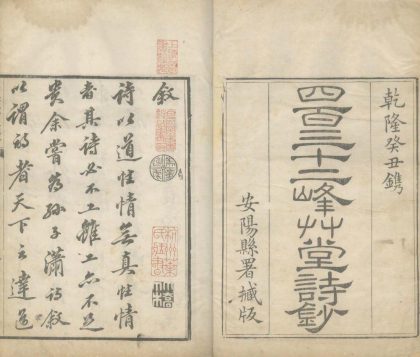 乾隆癸丑鐫
四百三十二峰艸堂詩鈔
安陽縣署藏版
敘
詩以道性情無真性情
者其詩必不工雖工亦不足
貴余嘗為孫子瀟詩敘
以謂詩者天下之達道